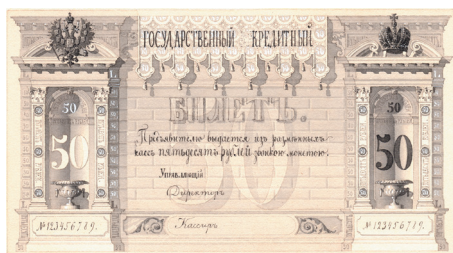 ГОСУДАРСТВЕННЫЙ КРЕДИТНЫЙ
БИЛЕТЪ.
50
50
50
50
50
Предъявителю выдается изъ размѣнныхъ
кассъ пятьдесятъ рублей звонкою монетою.
Управляющій
Директоръ
Кассиръ
№ 123456789.
№ 123456789.